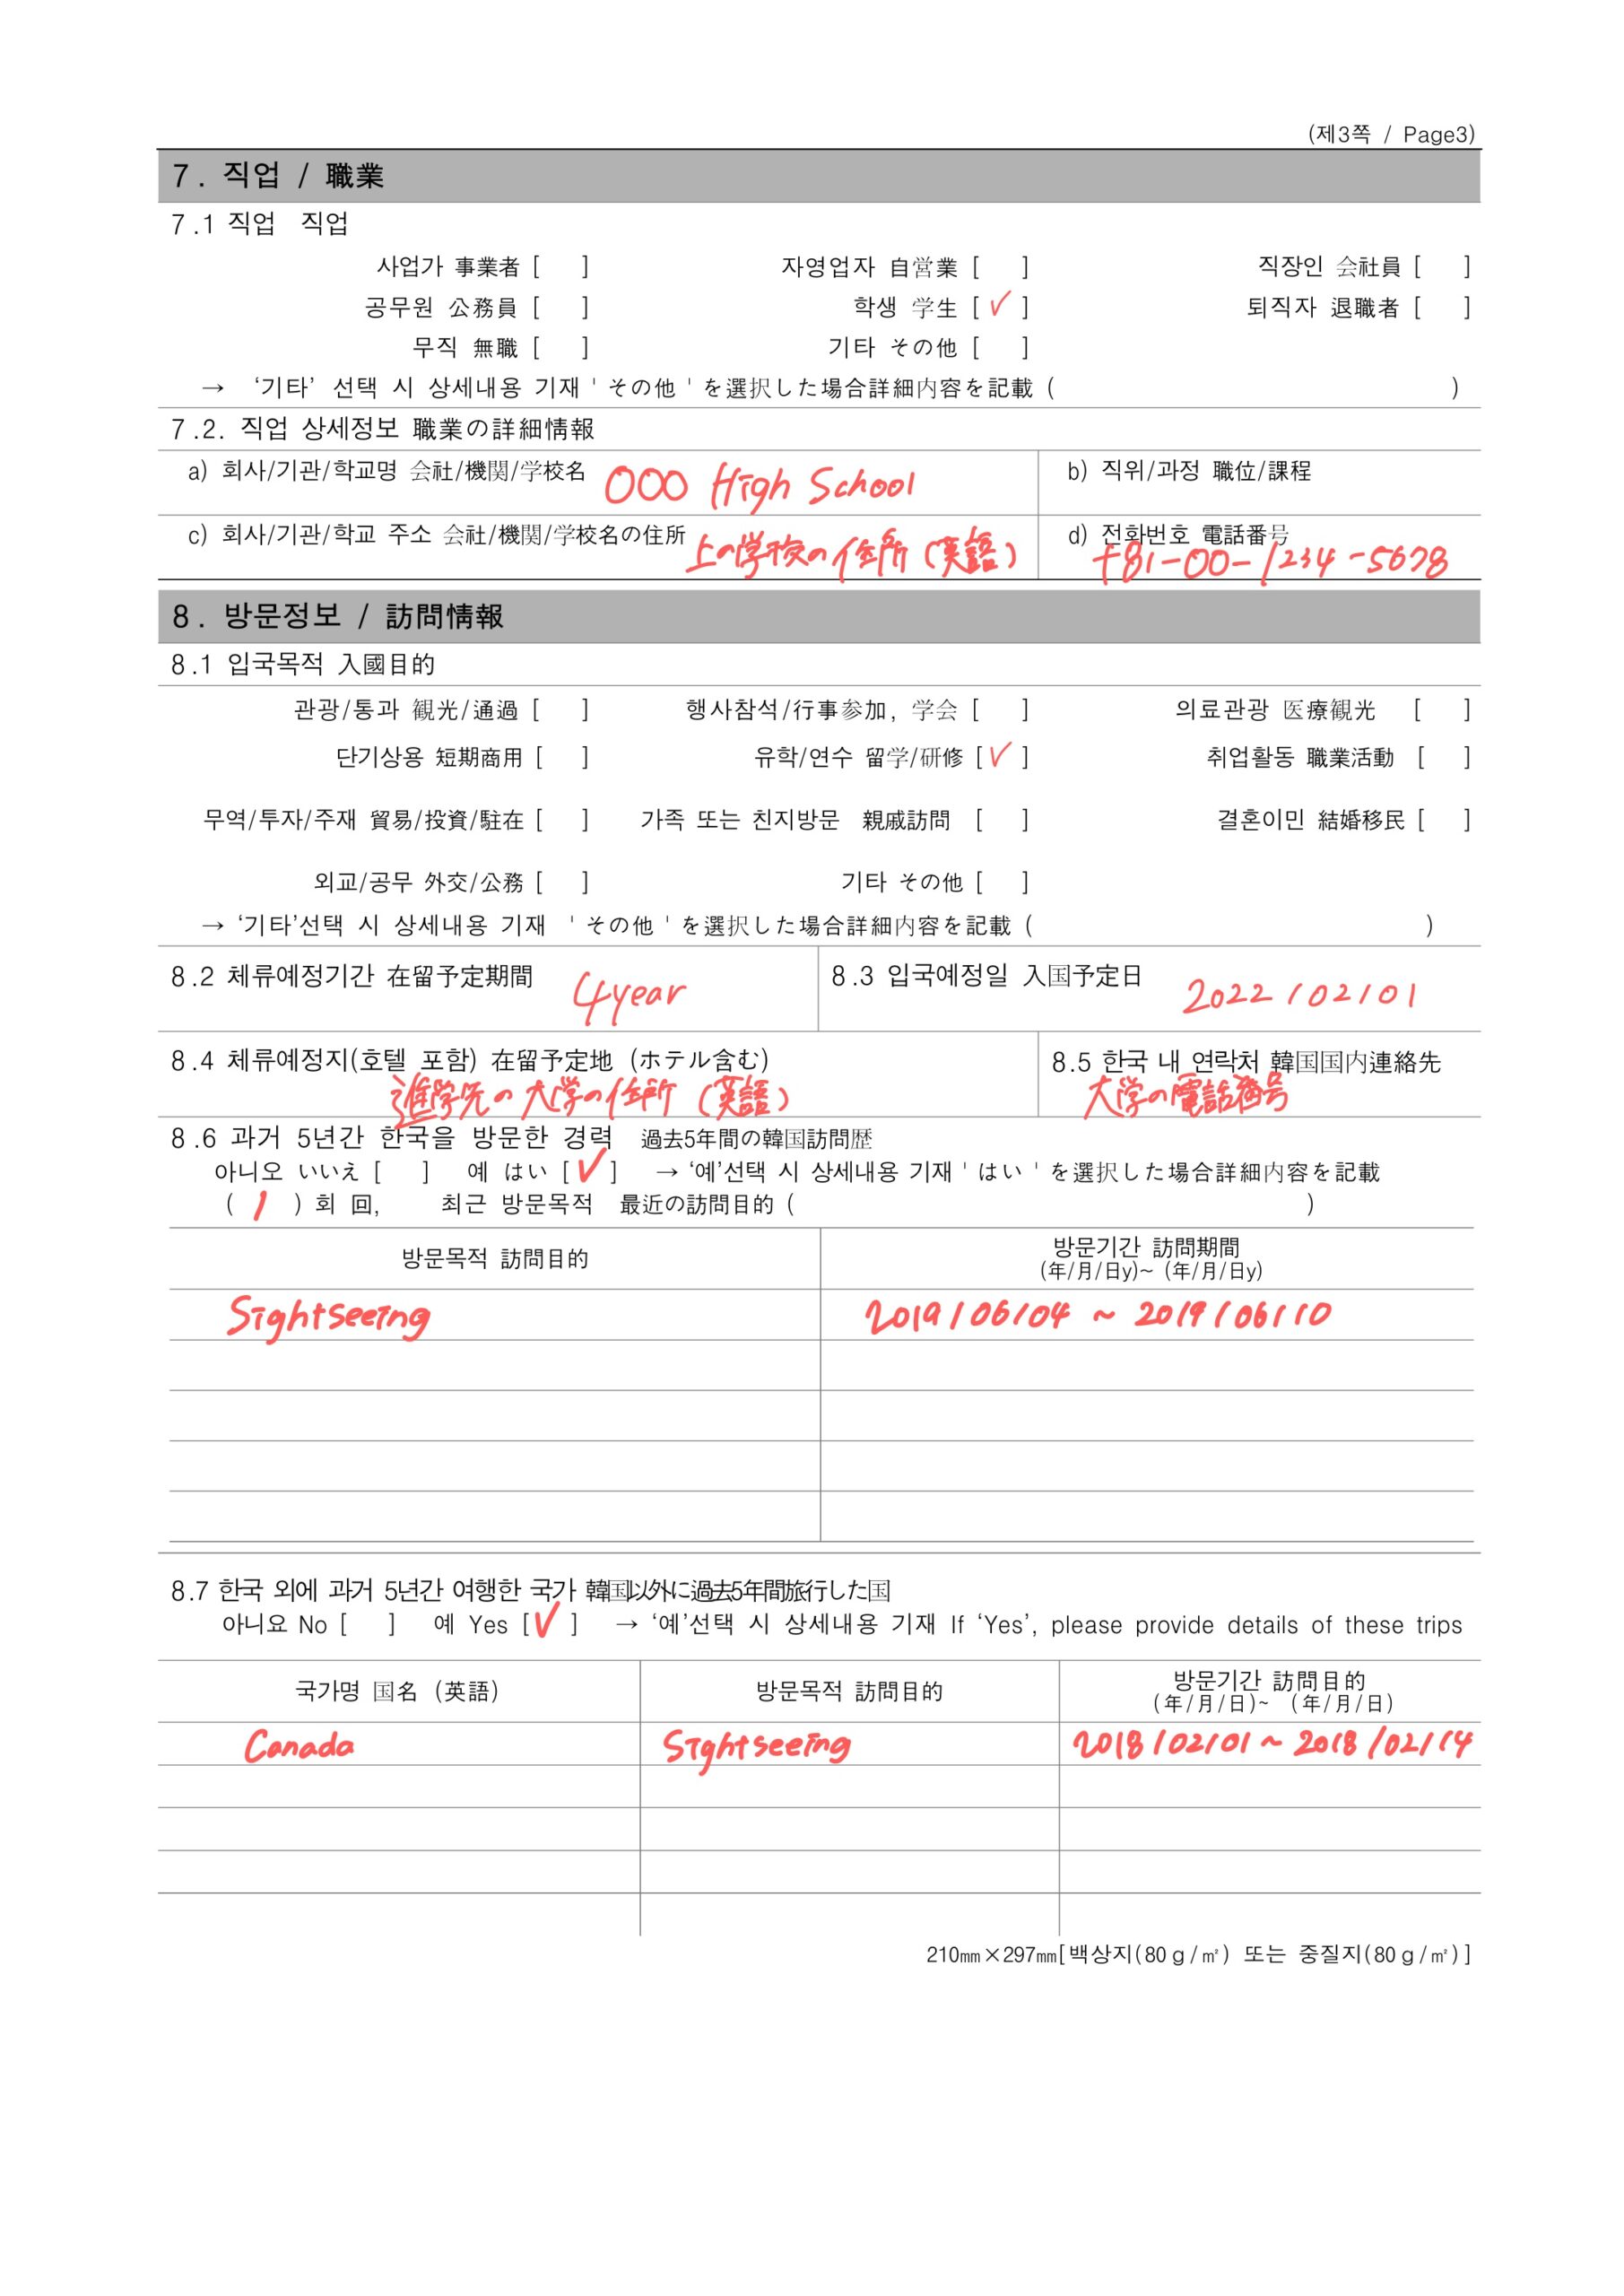 (제3쪽 / Page3)
7. 직업 / 職業
7.1 직업 직업
사업가 事業者 [ ] 자영업자 自営業 [ ] 직장인 会社員 [ ]
공무원 公務員 [ ] 학생 学生 [ ✓ ] 퇴직자 退職者 [ ]
무직 無職 [ ] 기타 その他 [ ]
→ ‘기타’ 선택 시 상세내용 기재 ' その他 ' を選択した場合詳細内容を記載 ( )
7.2. 직업 상세정보 職業の詳細情報
a) 회사/기관/학교명 会社/機関/学校名 OOO High School b) 직위/과정 職位/課程
c) 회사/기관/학교 주소 会社/機関/学校名の住所 上の学校の住所 (英語) d) 전화번호 電話番号 +81-00-1234-5678
8. 방문정보 / 訪問情報
8.1 입국목적 入國目的
관광/통과 観光/通過 [ ] 행사참석/行事参加, 学会 [ ] 의료관광 医療観光 [ ]
단기상용 短期商用 [ ] 유학/연수 留学/研修 [ ✓ ] 취업활동 職業活動 [ ]
무역/투자/주재 貿易/投資/駐在 [ ] 가족 또는 친지방문 親戚訪問 [ ] 결혼이민 結婚移民 [ ]
외교/공무 外交/公務 [ ] 기타 その他 [ ]
→ ‘기타’선택 시 상세내용 기재 ' その他 ' を選択した場合詳細内容を記載 ( )
8.2 체류예정기간 在留予定期間 4year 8.3 입국예정일 入国予定日 2022/02/01
8.4 체류예정지(호텔 포함) 在留予定地 (ホテル含む) 8.5 한국 내 연락처 韓国国内連絡先
進学先の大学の住所 (英語) 大学の電話番号
8.6 과거 5년간 한국을 방문한 경력 過去5年間の韓国訪問歴
아니오 いいえ [ ] 예 はい [ ✓ ] → ‘예’선택 시 상세내용 기재 ' はい ' を選択した場合詳細内容を記載
( 1 ) 회 回, 최근 방문목적 最近の訪問目的 ( )
방문목적 訪問目的 방문기간 訪問期間
(年/月/日y)~ (年/月/日y)
Sightseeing 2019/06/04 ~ 2019/06/10
8.7 한국 외에 과거 5년간 여행한 국가 韓国以外に過去5年間旅行した国
아니요 No [ ] 예 Yes [ ✓ ] → ‘예’선택 시 상세내용 기재 If ‘Yes’, please provide details of these trips
국가명 国名 (英語) 방문목적 訪問目的 방문기간 訪問目的
(年/月/日)~ (年/月/日)
Canada Sightseeing 2018/02/01 ~ 2018/02/14
210㎜×297㎜[백상지(80ｇ/㎡) 또는 중질지(80ｇ/㎡)]